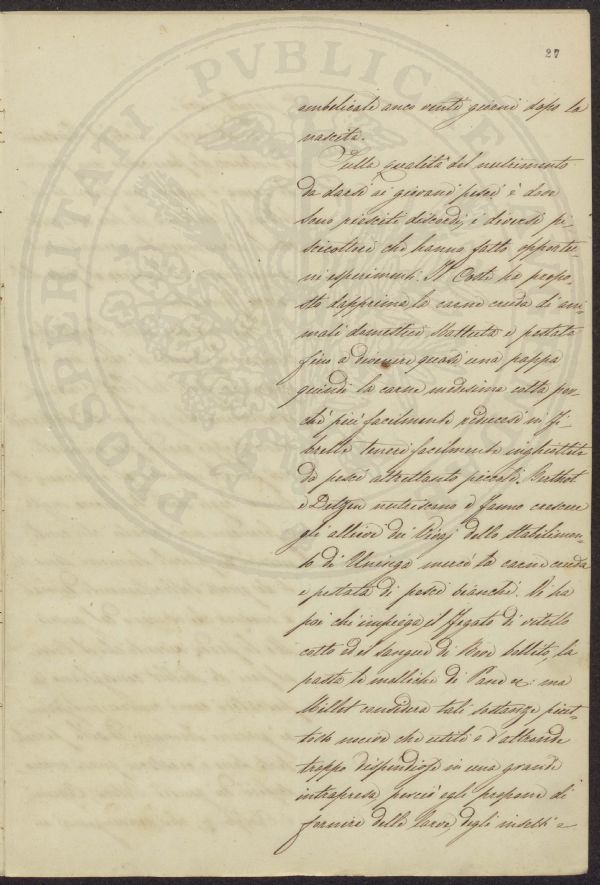 27
PROSPERITATI PVBLICAE
ombelicale anco venti giorni dopo la
nascita.
Sulla qualità del nutrimento
da darsi ai giovani pesci è dove
sono riesciti discordi, i diversi pi-
scicoltori che hanno fatto opportu-
ni esperimenti. Il Coste ha propo-
sto dapprima la carne cruda di ani-
mali domestici battuta e pestata
fino a divenire quasi una pappa
quindi la carne medesima cotta per-
chè più facilmente riducesi in fi-
brille tenui facilmente inghiottite
da pesci altrettanto piccoli. Berthot
e Detzem nutriscono e fanno crescere
gli allievi dei vivaj dello stabilimen-
to di Uninga mercè la carne cruda
e pestata di pesci bianchi. Vi ha
poi chi impiega il fegato di vitello
cotto ed il sangue di Bove bollito, la
pasta le molliche di Pane ec: ma
Millet considera tali sostanze piut-
tosto nocive che utili e d'altronde
troppo dispendiose in una grande
intrapresa perciò egli propone di
fornire delle larve, degli insetti e